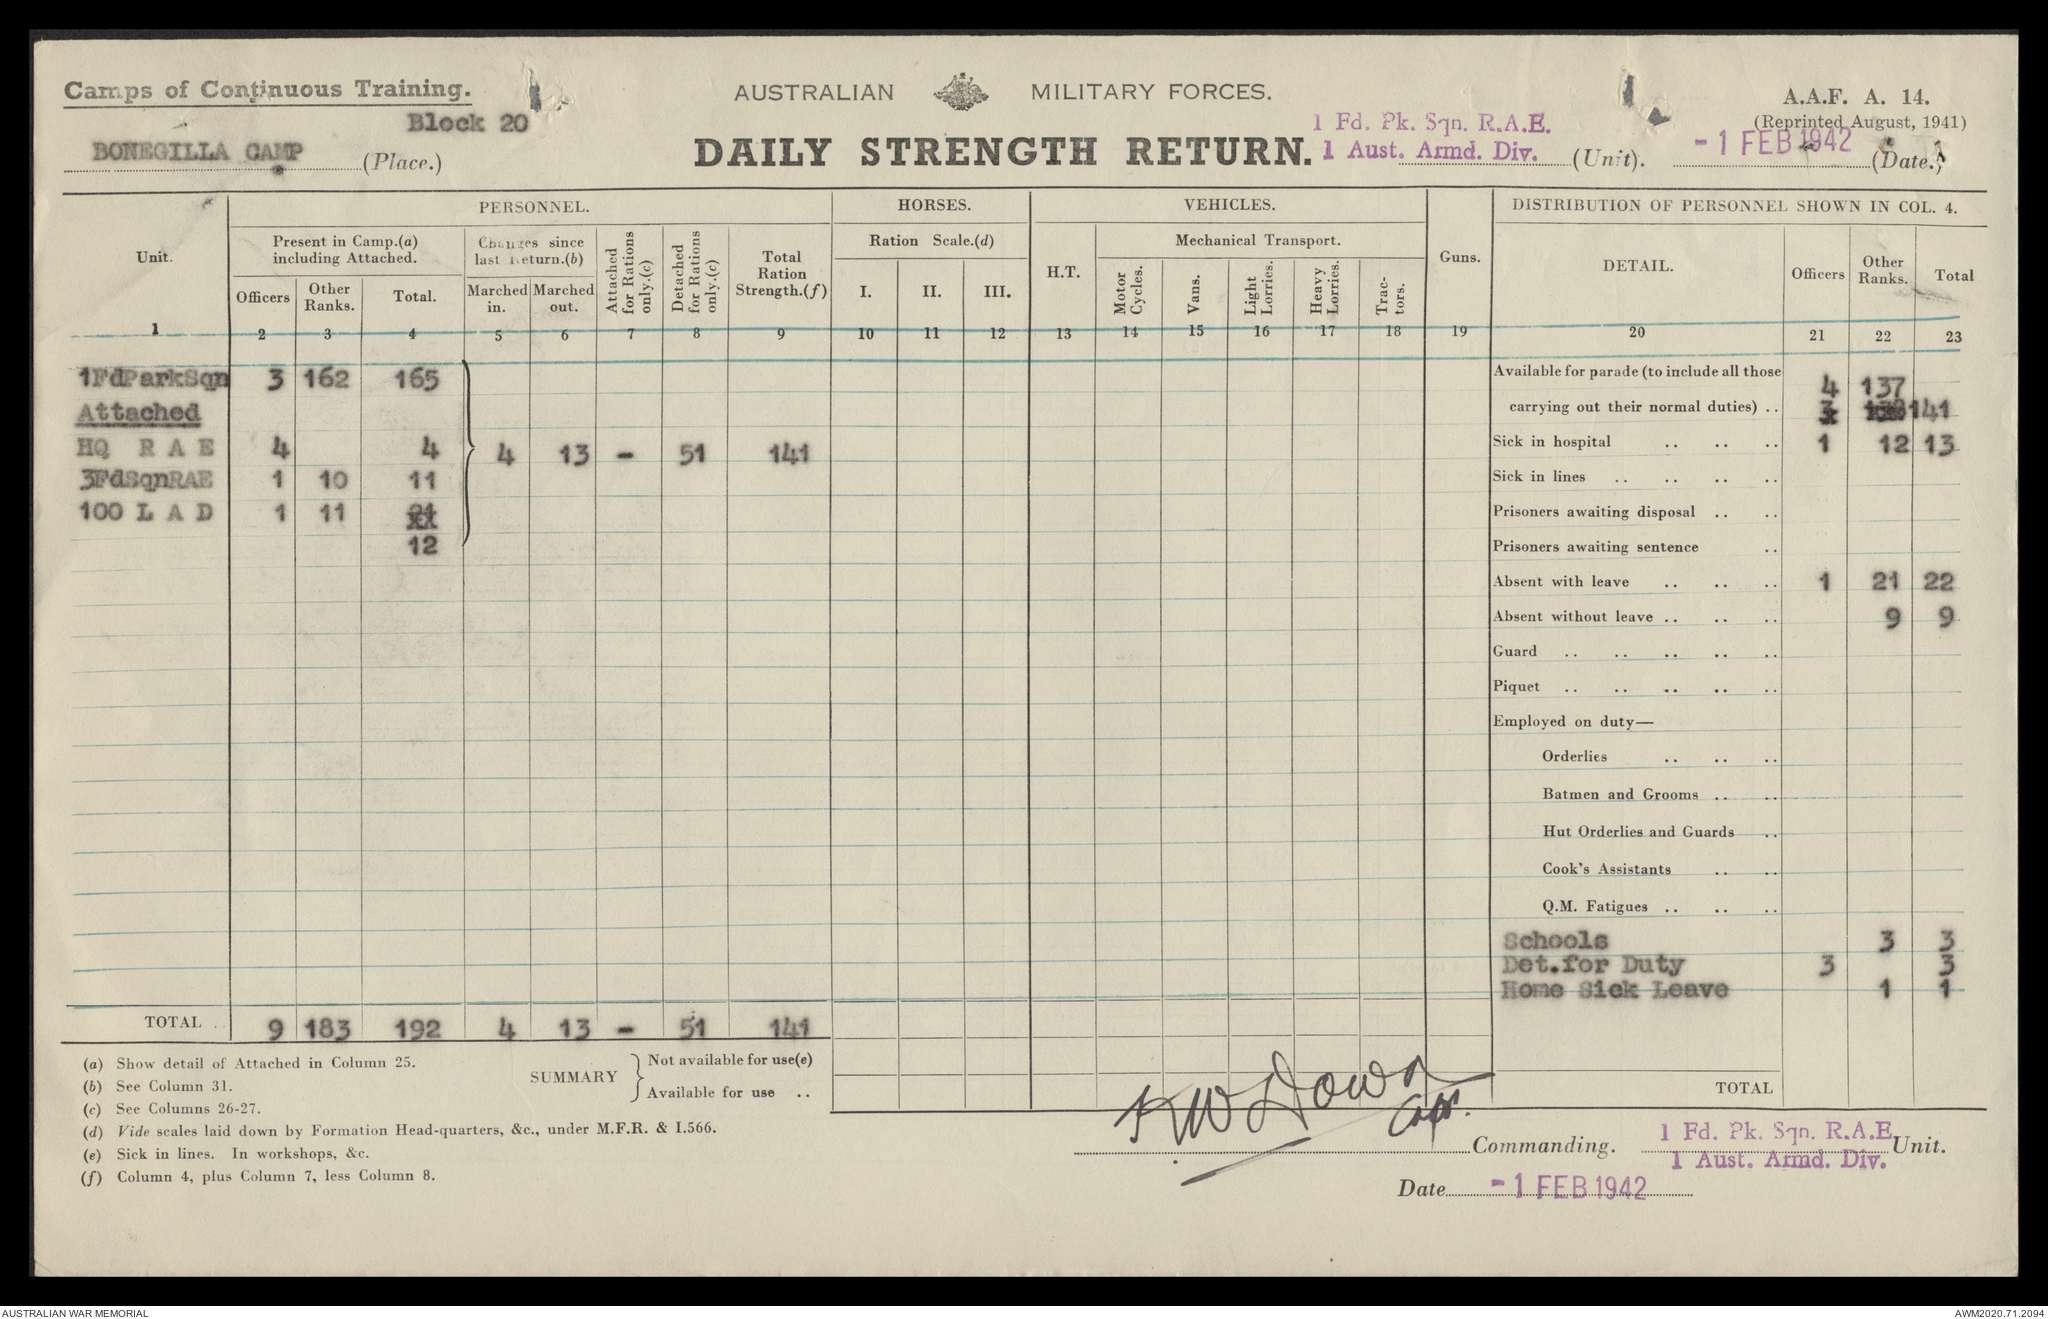 Camps of Continuous Training.
Block 20
BONEGILLA CAMP (Place.)
AUSTRALIAN MILITARY FORCES.
DAILY STRENGTH RETURN.
1 Fd. Pk. Sqn. R.A.E.
1 Aust. Armd. Div. (Unit).
A.A.F. A. 14.
(Reprinted August, 1941)
- 1 FEB 1942 (Date.)
PERSONNEL. HORSES. VEHICLES. DISTRIBUTION OF PERSONNEL SHOWN IN COL. 4.
Unit.
Present in Camp.(a) including Attached.
Officers
Other Ranks.
Total.
Changes since last Return.(b)
Marched in.
Marched out.
Attached for Rations only.(c)
Detached for Rations only.(c)
Total Ration Strength.(f)
Ration Scale.(d)
I. II. III.
H.T.
Mechanical Transport.
Motor Cycles.
Vans.
Light Lorries.
Heavy Lorries.
Tractors.
Guns.
DETAIL.
Officers
Other Ranks.
Total
1 2 3 4 5 6 7 8 9 10 11 12 13 14 15 16 17 18 19 20 21 22 23
1FdParkSqn 3 162 165
Attached
HQ R A E 4 4
4 13 - 51 141
3FdSqnRAE 1 10 11
100 L A D 1 11
12
TOTAL 9 183 192 4 13 - 51 141
Available for parade (to include all those
4 137
carrying out their normal duties) .. 141
Sick in hospital .. .. .. 1 12 13
Sick in lines .. .. .. ..
Prisoners awaiting disposal .. ..
Prisoners awaiting sentence ..
Absent with leave .. .. .. 1 21 22
Absent without leave .. .. .. 9 9
Guard .. .. .. .. ..
Piquet .. .. .. .. ..
Employed on duty—
Orderlies .. .. ..
Batmen and Grooms .. ..
Hut Orderlies and Guards ..
Cook's Assistants .. ..
Q.M. Fatigues .. .. ..
Schools 3 3
Det.for Duty 3 3
Home Sick Leave 1 1
TOTAL
(a) Show detail of Attached in Column 25.
(b) See Column 31.
(c) See Columns 26-27.
(d) Vide scales laid down by Formation Head-quarters, &c., under M.F.R. & I.566.
(e) Sick in lines. In workshops, &c.
(f) Column 4, plus Column 7, less Column 8.
SUMMARY
Not available for use(e)
Available for use ..
K W Down
Capt.
Commanding.
1 Fd. Pk. Sqn. R.A.E.
1 Aust. Armd. Div.
Unit.
Date - 1 FEB 1942
AUSTRALIAN WAR MEMORIAL
AWM2020.71.2094